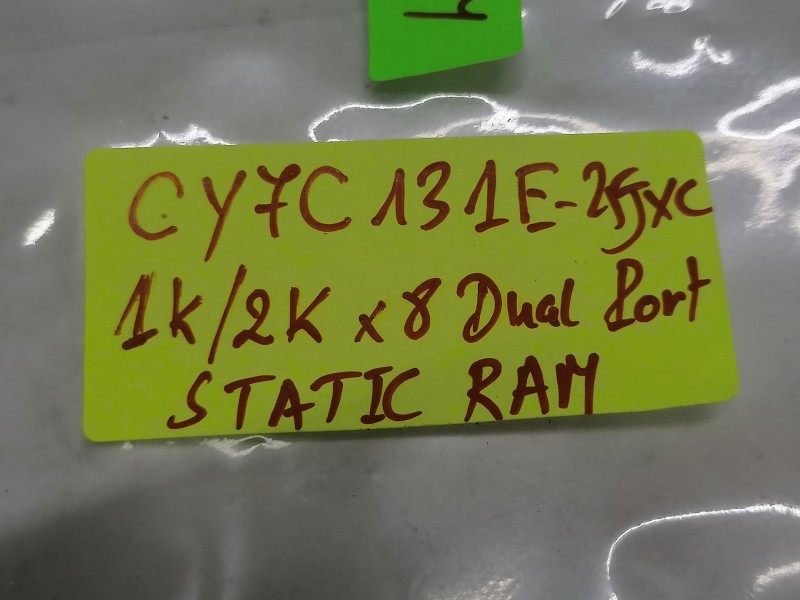 CY7C131E-25JXC
1K/2K x 8 Dual Port
STATIC RAM